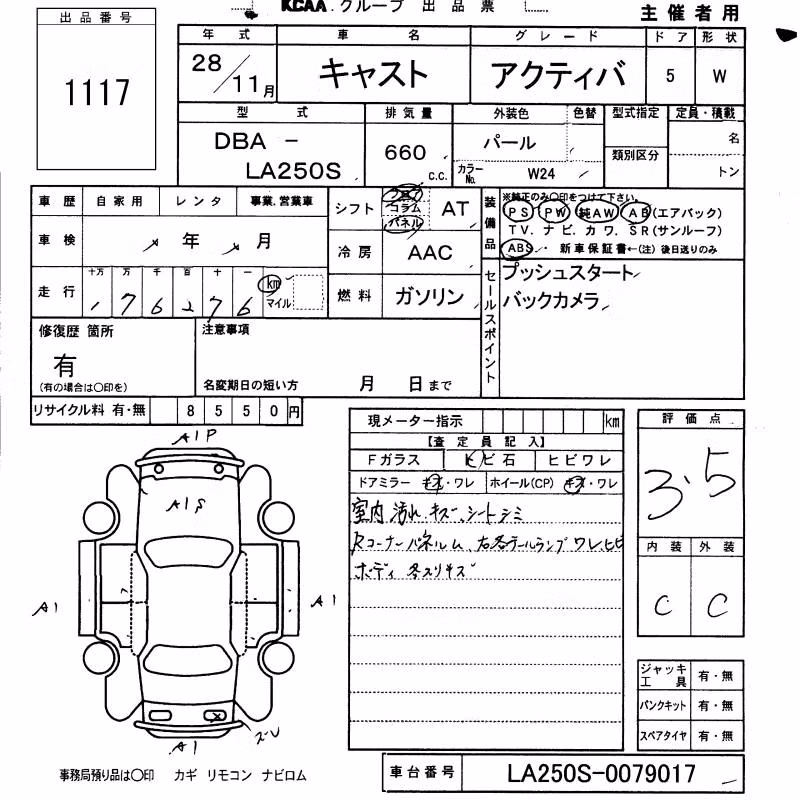 KCAA グループ 出品票
主催者用
出品番号
1117
年式 車名 グレード ドア 形状
28/11月 キャスト アクティバ 5 W
型式 排気量 外装色 色替 型式指定 定員・積載
DBA - LA250S 660 c.c. パール 類別区分 名
カラーNo. W24 トン
車歴 自家用 レンタ 事業.営業車
車検 年 月
走行 十万 万 千 百 十 一 km マイル
1 7 6 2 7 6
シフト フロア コラム パネル AT
冷房 AAC
燃料 ガソリン
装備品 ※純正のみ〇印をつけて下さい。
PS PW 純AW AB(エアバック)
TV. ナビ. カワ. SR(サンルーフ)
ABS・ 新車保証書←(注) 後日送りのみ
セールスポイント プッシュスタート
バックカメラ
修復歴 箇所 注意事項
有
(有の場合は〇印を) 名変期日の短い方 月 日まで
リサイクル料 有・無 8 5 5 0 円
現メーター指示 km
【査定員記入】
Fガラス ヒビ石 ヒビワレ
ドアミラー キズ・ワレ ホイール(CP) キズ・ワレ
室内 汚れ.キズ、シートシミ
Rコーナーパネルム、右各テールランプワレ、ヒビ
ボディ 各スリキズ
評価点
3.5
内装 外装
C C
A1P
A1S
A1
A1
A1
ズレ
ジャッキ工具 有・無
パンクキット 有・無
スペアタイヤ 有・無
事務局預り品は〇印 カギ リモコン ナビロム
車台番号 LA250S-0079017